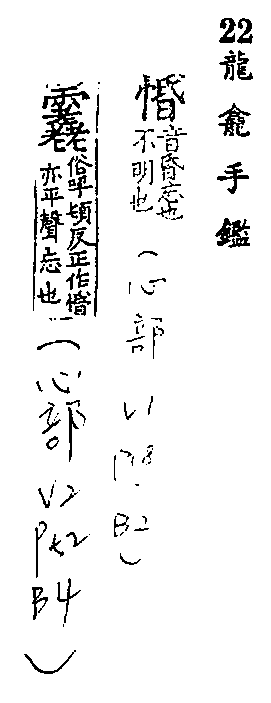 22龍龕手鑑
惛音昏忘也
不明也
(心部
V1
B2)
俗呼頓反正作惛
亦平聲忘也
(心部
V2
P52
B4
)